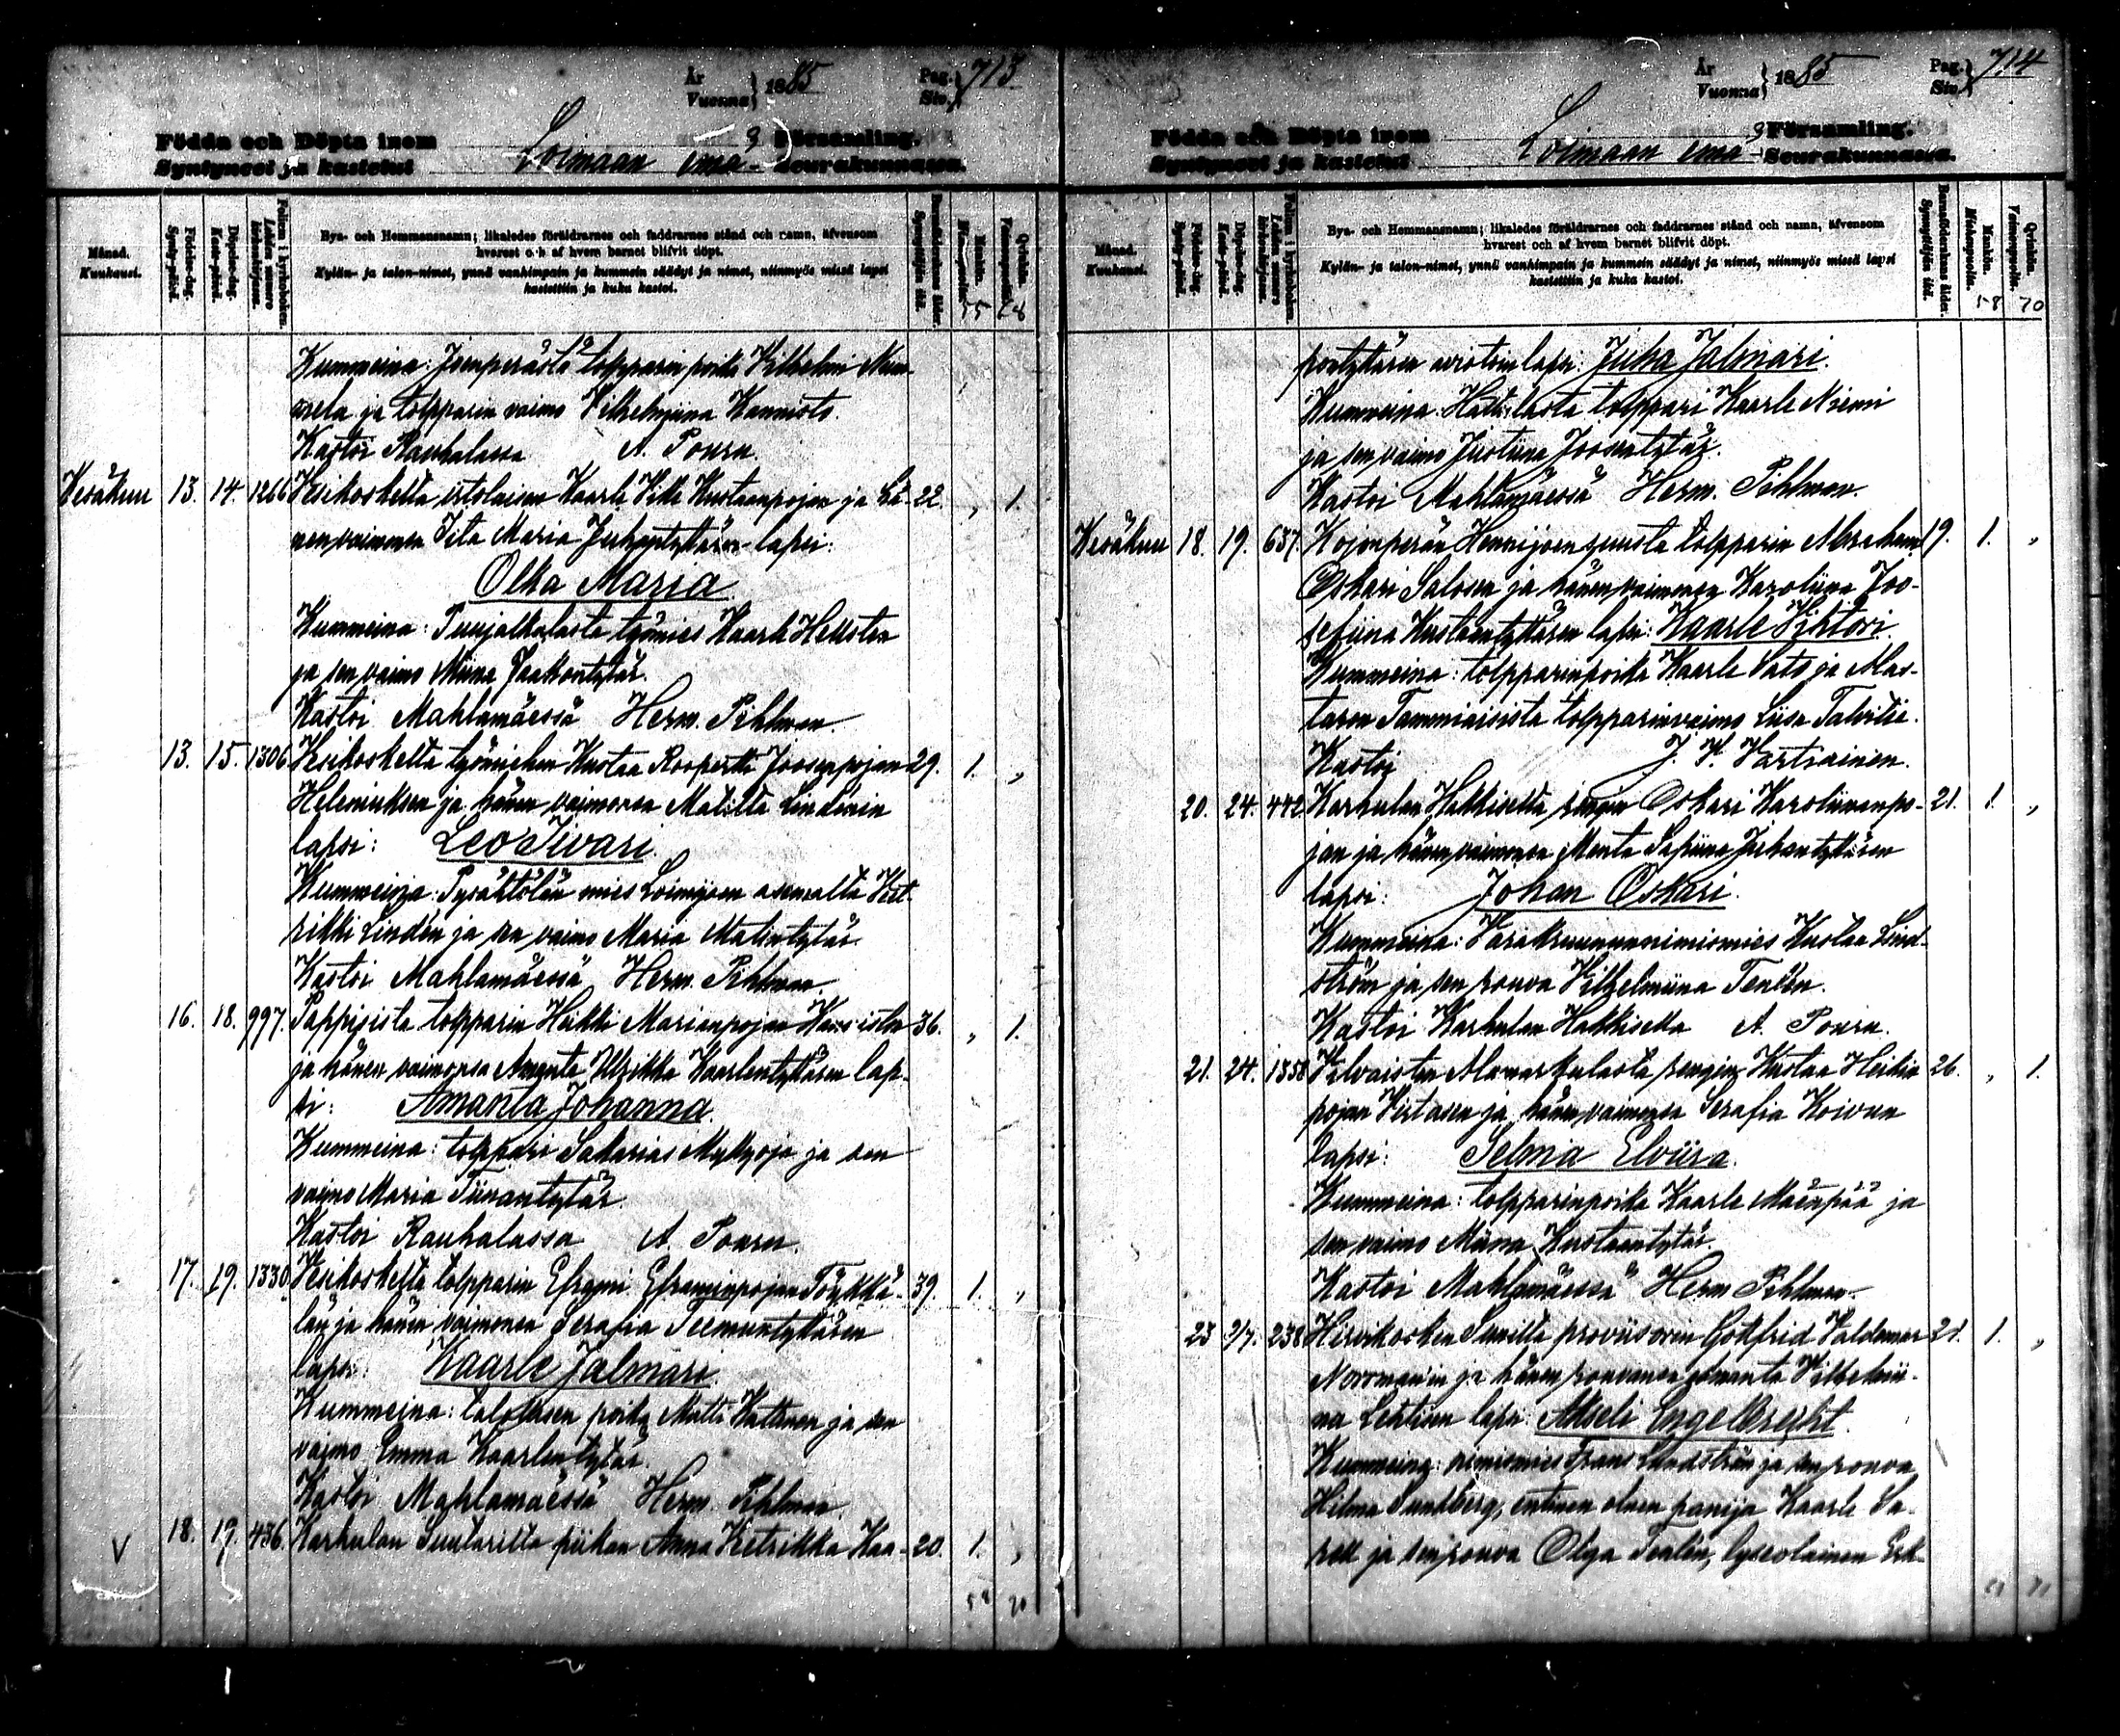 År
Vuonna } 1885
Pag.
Siv. } 713
Födda och Döpta inom Församling.
Syntyneet ja kastetut Loimaan emä Seurakunnassa.
Månad.
Kuukausi.
Födelse-dag.
Synty-päivä.
Döpelse-dag.
Kaste-päivä.
Folium i kyrkoboken.
Lehden numero kirkonkirjassa.
Bya- och Hemmansnamn; likaledes föräldrarnes och faddrarnes stånd och namn, äfvensom
hvarest och af hvem barnet blifvit döpt.
Kylän- ja talon-nimet, ynnä vanhimpain ja kummein säädyt ja nimet, niinmyös missä lapsi
kastettiin ja kuka kastoi.
Barnaföderskans ålder.
Synnyttäjän ikä.
Mankön.
Miehenpuolia.
Qvinkön.
Vaimonpuolia.
55 68
Kummeina: Joenperästä tolpparin poika Vilhelmi
ja tolpparin vaimo Vilhelmiina Kannisto.
Kastoi Rauhalassa A. Pouru.
Kesäkuu 13. 14. 1266 Vesikoskelta itsolaisen Kaarle Kustaanpojan ja hä- 22. „ 1.
nen vaimonsa Iita Maria Juhantyttären lapsi:
Olka Maria
Kummeina: Puujalkalasta työmies Kaarle Hellsten
ja sen vaimo Miina Jaakontytär.
Kastoi Mahlamäessä Herm. Pihlman.
13. 15. 1306 Vesikoskelta työmiehen Kustaa Roopertti Joosepojan 29. 1. „
Heleniuksen ja hänen vaimonsa Matilta Lindénin
lapsi: Leo Iivari.
Kummeina: Pysähtölän mies Loimijoen asemalta
Lindén ja sen vaimo Maria Matintytär
Kastoi Mahlamäessä Herm. Pihlman.
16. 18. 997. Pappisista tolpparin Heikki Marianpojan 36. „ 1.
ja hänen vaimonsa Amanta Ulrikka Kaarlentyttären lap-
si: Amanta Johanna.
Kummeina: tolppari Sakarias Myllyoja ja sen
vaimo Maria Tiinantytär.
Kastoi Rauhalassa A. Pouru.
17. 19. 1330. Vesikoskelta tolpparin Efraimi Efraiminpojan Töykkä- 39. 1. „
län ja hänen vaimonsa Serafia Teemuntyttären
lapsi: Kaarle Jalmari.
Kummeina: talollisen poika Matti Kattinen ja sen
vaimo Emma Kaarlentytär.
Kastoi Mahlamäessä Herm. Pihlman.
V 18. 19. 436. Karhulan Suutarilta piikan Anna Ketrikka Kaa- 20. 1. „
58 70
År
Vuonna } 1885
Pag.
Siv. } 714
Födda och Döpta inom Församling.
Syntyneet ja kastetut Loimaan emä Seurakunnassa.
Månad.
Kuukausi.
Födelse-dag.
Synty-päivä.
Döpelse-dag.
Kaste-päivä.
Folium i kyrkoboken.
Lehden numero kirkonkirjassa.
Bya- och Hemmansnamn; likaledes föräldrarnes och faddrarnes stånd och namn, äfvensom
hvarest och af hvem barnet blifvit döpt.
Kylän- ja talon-nimet, ynnä vanhimpain ja kummein säädyt ja nimet, niinmyös missä lapsi
kastettiin ja kuka kastoi.
Barnaföderskans ålder.
Synnyttäjän ikä.
Mankön.
Miehenpuolia.
Qvinkön.
Vaimonpuolia.
58 70
lapsi: Juha Jalmari.
Kummeina: tolppari Kaarle Niemi
ja sen vaimo Justiina Joosentytär.
Kastoi Mahlamäessä Herm. Pihlman.
Kesäkuu 18. 19. 637. Kojonperän Hennijoen suusta tolpparin Abraham 19. 1. „
Oskari Salosen ja hänen vaimonsa Karoliina Joo-
sefiina Kustaantyttären lapsi: Kaarle Vihtori.
Kummeina: tolpparinpoika Kaarle Salo ja Mas-
taron Tammiaisista tolpparinvaimo Liisa Talvitie.
Kastoi J. V. Vartiainen.
20. 24. 442 Karhulan Hakkisetta rengin Oskari Karoliinanpo- 21. 1. „
jan ja hänen vaimonsa Menta Sofiina Juhantyttären
lapsi: Johan Oskari.
Kummeina: Varakruununnimismies Kustaa Lind-
ström ja sen rouva Vilhelmiina Tendén.
Kastoi Karhulan Hakkisella A. Pouru.
21. 24. 1358 rengin Kustaa Heikin 26. „ 1.
pojan Virtasen ja hänen vaimonsa Serafia Koivun
lapsi: Selma Elviira.
Kummeina: tolpparinpoika Kaarle Mäenpää ja
sen vaimo Miina Kustaantytär.
Kastoi Mahlamäessä Herm. Pihlman.
23 2/7. 238 Hirvikosken proviisorin Gotfrid Valdemar 21. 1. „
Norrman'in ja hänen rouvansa Amanta Vilhelmii-
na Lehtisen lapsi: Akseli Engelbrecht.
Kummeina: nimismies Frans Lindström ja sen rouva
Hilma Sundberg, entinen oluen panija Kaarle
ja sen rouva Olga Tealén, lyseolainen